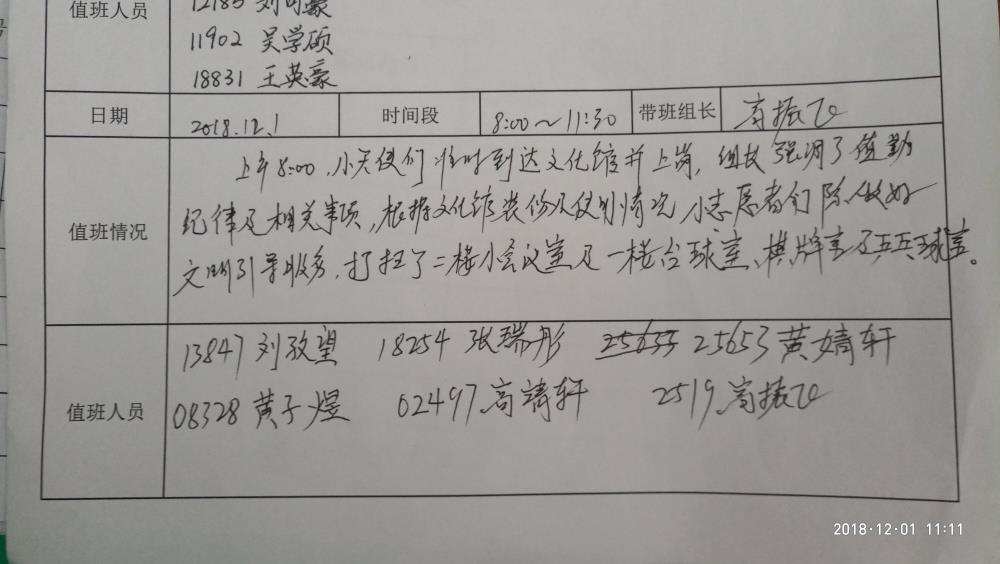 值班人员
12183 刘可豪
11902 吴学硕
18831 王英豪
日期 2018.12.1 时间段 8:00~11:30 带班组长 高振飞
上午8:00,小天使们准时到达文化馆并上岗,组长强调了值勤
值班情况 纪律及相关事项,根据文化馆装修及使用情况,小志愿者们除做好
文明引导服务,打扫了二楼小会议室及一楼台球室、棋牌室及乒乓球室。
13847 刘孜望 18254 张瑞彤 25655 25653 黄婧轩
值班人员 08328 黄子煜 02497 高靖轩 2519 高振飞
2018-12-01 11:11